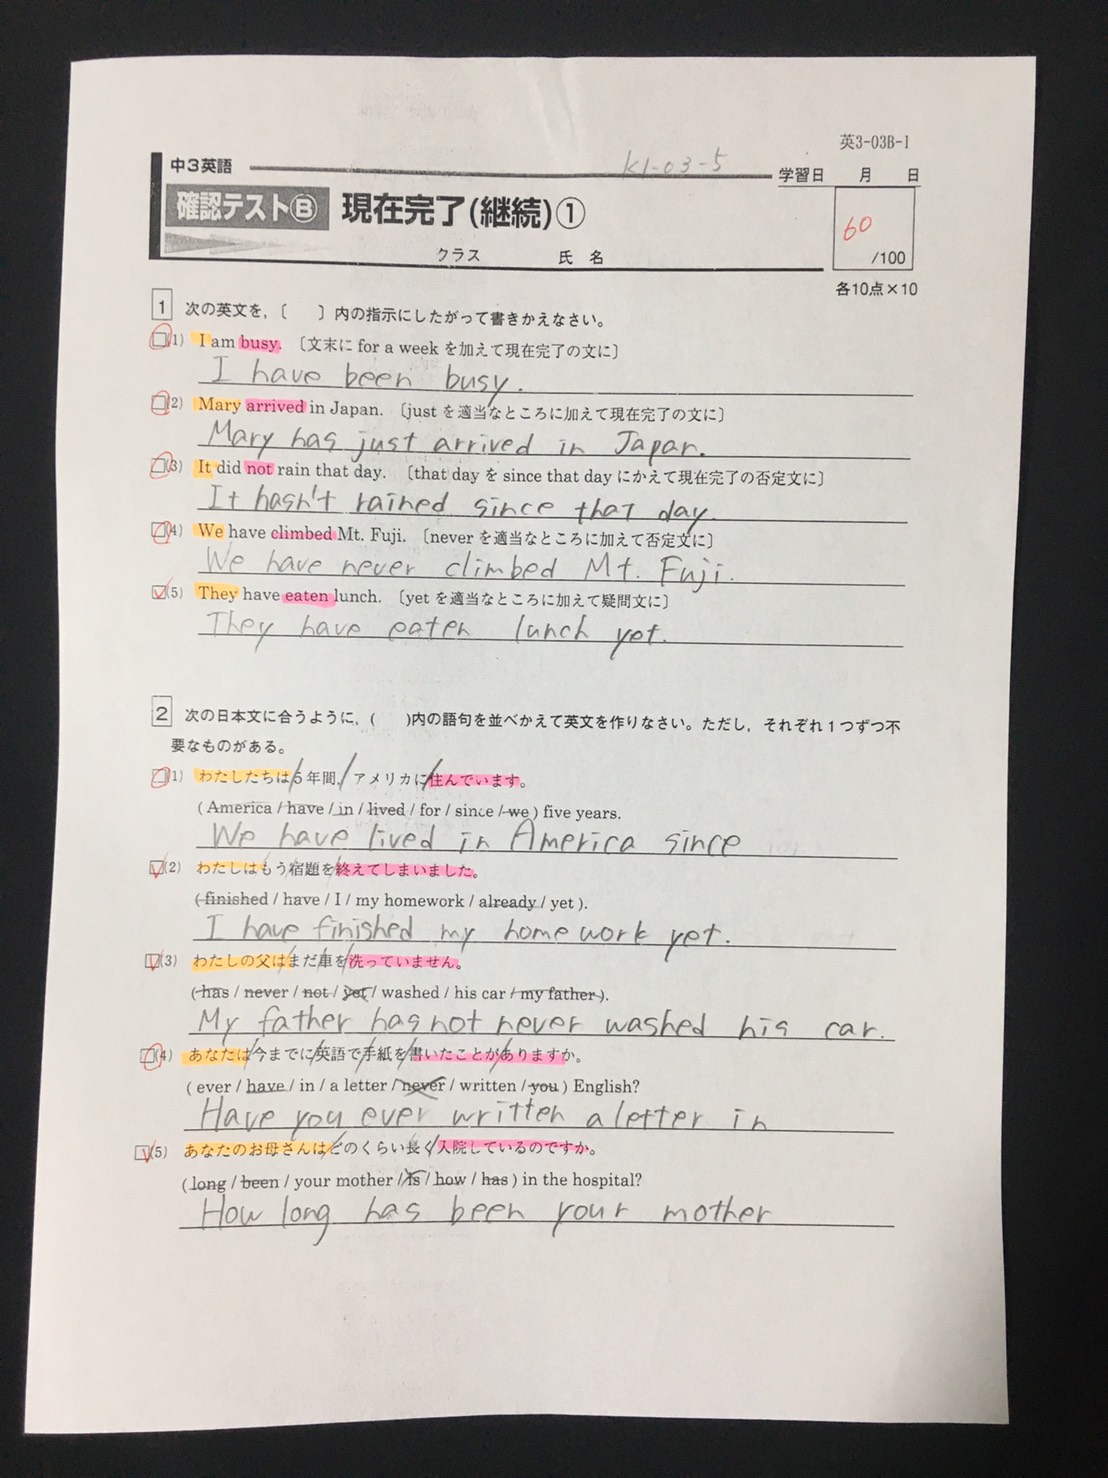 英3-03B-1
中3英語
K1-03-5
学習日 月 日
確認テストⒷ 現在完了(継続)①
60
/100
クラス 氏 名
各10点×10
1 次の英文を,〔 〕内の指示にしたがって書きかえなさい。
(1) I am busy. 〔文末に for a week を加えて現在完了の文に〕
I have been busy.
(2) Mary arrived in Japan. 〔just を適当なところに加えて現在完了の文に〕
Mary has just arrived in Japan.
(3) It did not rain that day. 〔that day を since that day にかえて現在完了の否定文に〕
It hasn't rained since that day.
(4) We have climbed Mt. Fuji. 〔never を適当なところに加えて否定文に〕
We have never climbed Mt. Fuji.
(5) They have eaten lunch. 〔yet を適当なところに加えて疑問文に〕
They have eaten lunch yet.
2 次の日本文に合うように,( )内の語句を並べかえて英文を作りなさい。ただし,それぞれ1つずつ不
要なものがある。
(1) わたしたちは5年間,アメリカに住んでいます。
( America / have / in / lived / for / since / we ) five years.
We have lived in America since
(2) わたしはもう宿題を終えてしまいました。
( finished / have / I / my homework / already / yet ).
I have finished my homework yet.
(3) わたしの父はまだ車を洗っていません。
( has / never / not / yet / washed / his car / my father ).
My father has not never washed his car.
(4) あなたは今までに英語で手紙を書いたことがありますか。
( ever / have / in / a letter / never / written / you ) English?
Have you ever written a letter in
(5) あなたのお母さんはどのくらい長く入院しているのですか。
( long / been / your mother / is / how / has ) in the hospital?
How long has been your mother